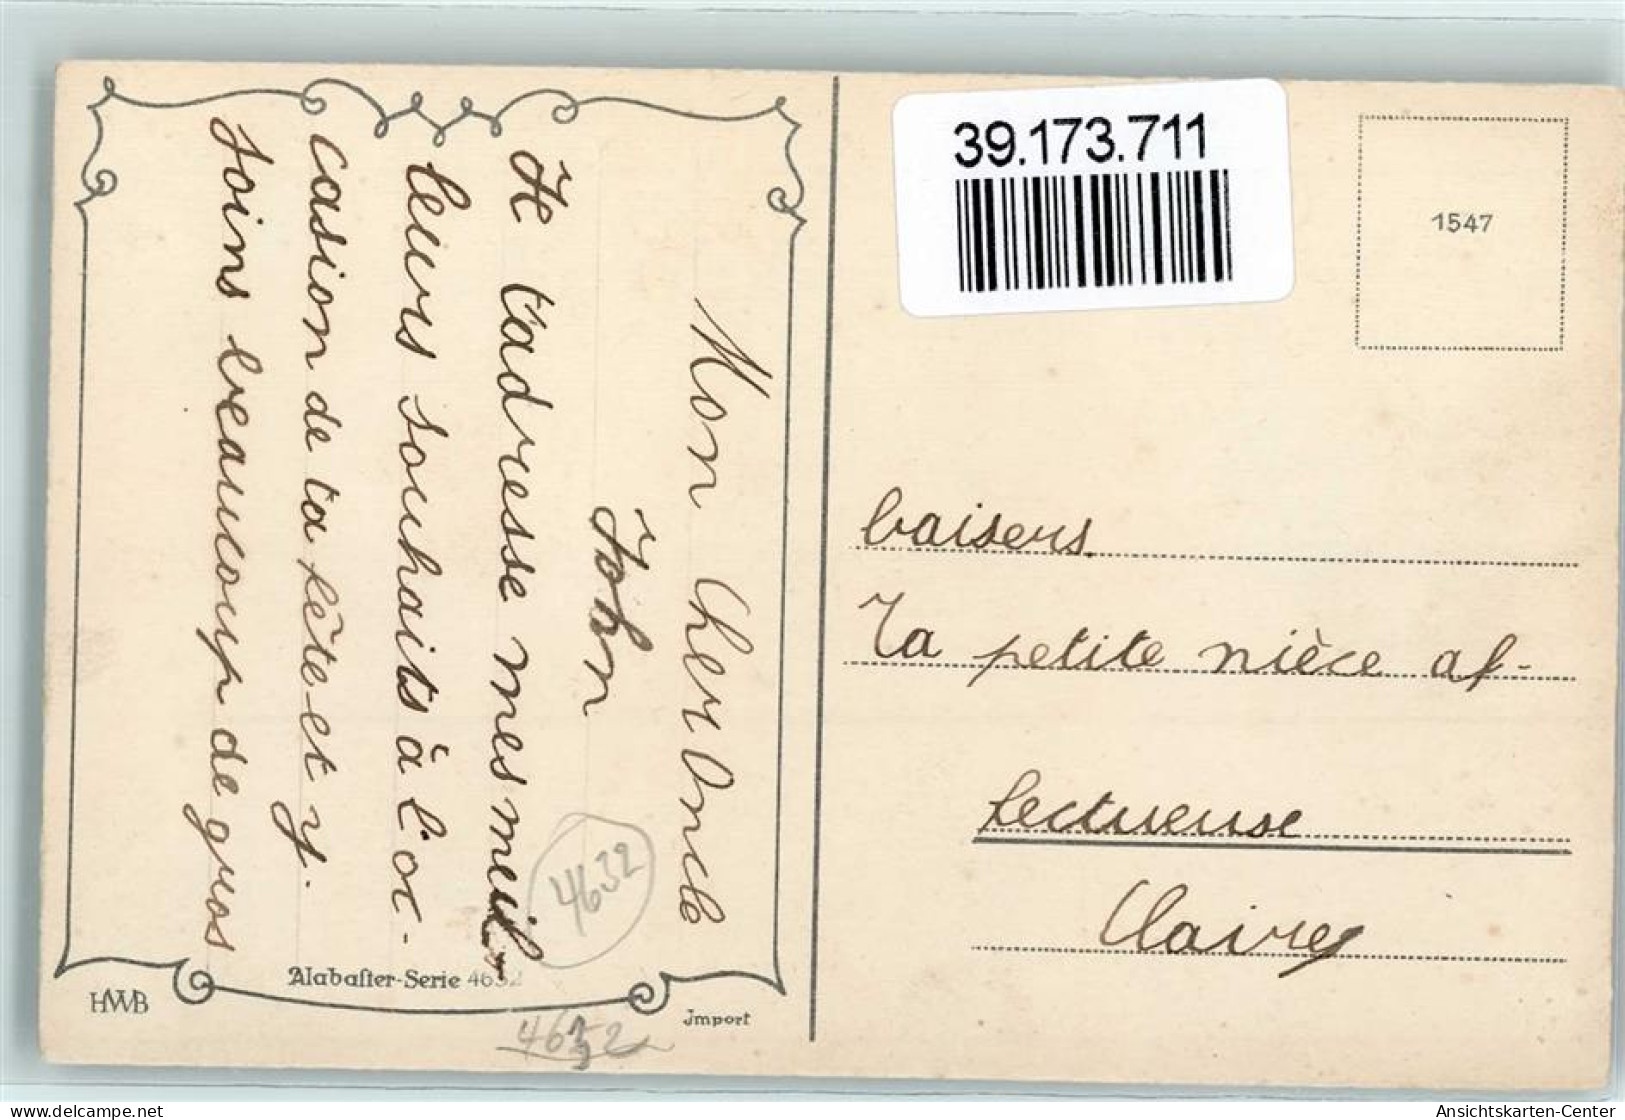 Mon cher Oncle
John
Je t'adresse mes meil
leurs souhaits à l'oc-
casion de ta fête et y.
joins beaucoup de gros
baisers.
Ta petite nièce af-
fectueuse
Claire
39.173.711
1547
4632
Alabaster-Serie 4632
HWB
Jmport
4632
Ansichtskarten-Center